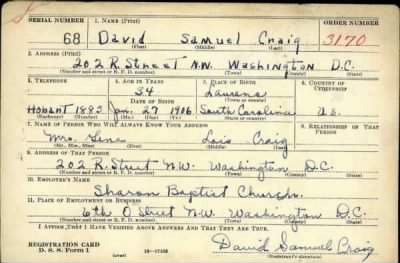 SERIAL NUMBER 1. NAME (Print) ORDER NUMBER
68 David Samuel Craig 3170
(First) (Middle) (Last)
2. ADDRESS (Print)
202 R. Street N.W. Washington D.C.
(Number and street or R. F. D. number) (Town) (County) (State)
3. TELEPHONE 4. AGE IN YEARS 5. PLACE OF BIRTH 6. COUNTRY OF CITIZENSHIP
34 Laurens
(Town or county)
DATE OF BIRTH
Hobart 1883 Jan. 27 1906 South Carolina U.S.
(Exchange) (Number) (Mo.) (Day) (Yr.) (State or country)
7. NAME OF PERSON WHO WILL ALWAYS KNOW YOUR ADDRESS 8. RELATIONSHIP OF THAT PERSON
Mrs. Lois Craig
(Mr., Mrs., Miss) (First) (Middle) (Last)
9. ADDRESS OF THAT PERSON
202 R. Street N.W. Washington D.C.
(Number and street or R. F. D. number) (Town) (County) (State)
10. EMPLOYER'S NAME
Sharon Baptist Church.
11. PLACE OF EMPLOYMENT OR BUSINESS
6th O Street N.W. Washington D.C.
(Number and street or R. F. D. number) (Town) (County) (State)
I AFFIRM THAT I HAVE VERIFIED ABOVE ANSWERS AND THAT THEY ARE TRUE.
REGISTRATION CARD
D. S. S. Form 1 16—17105 David Samuel Craig
(Registrant's signature)